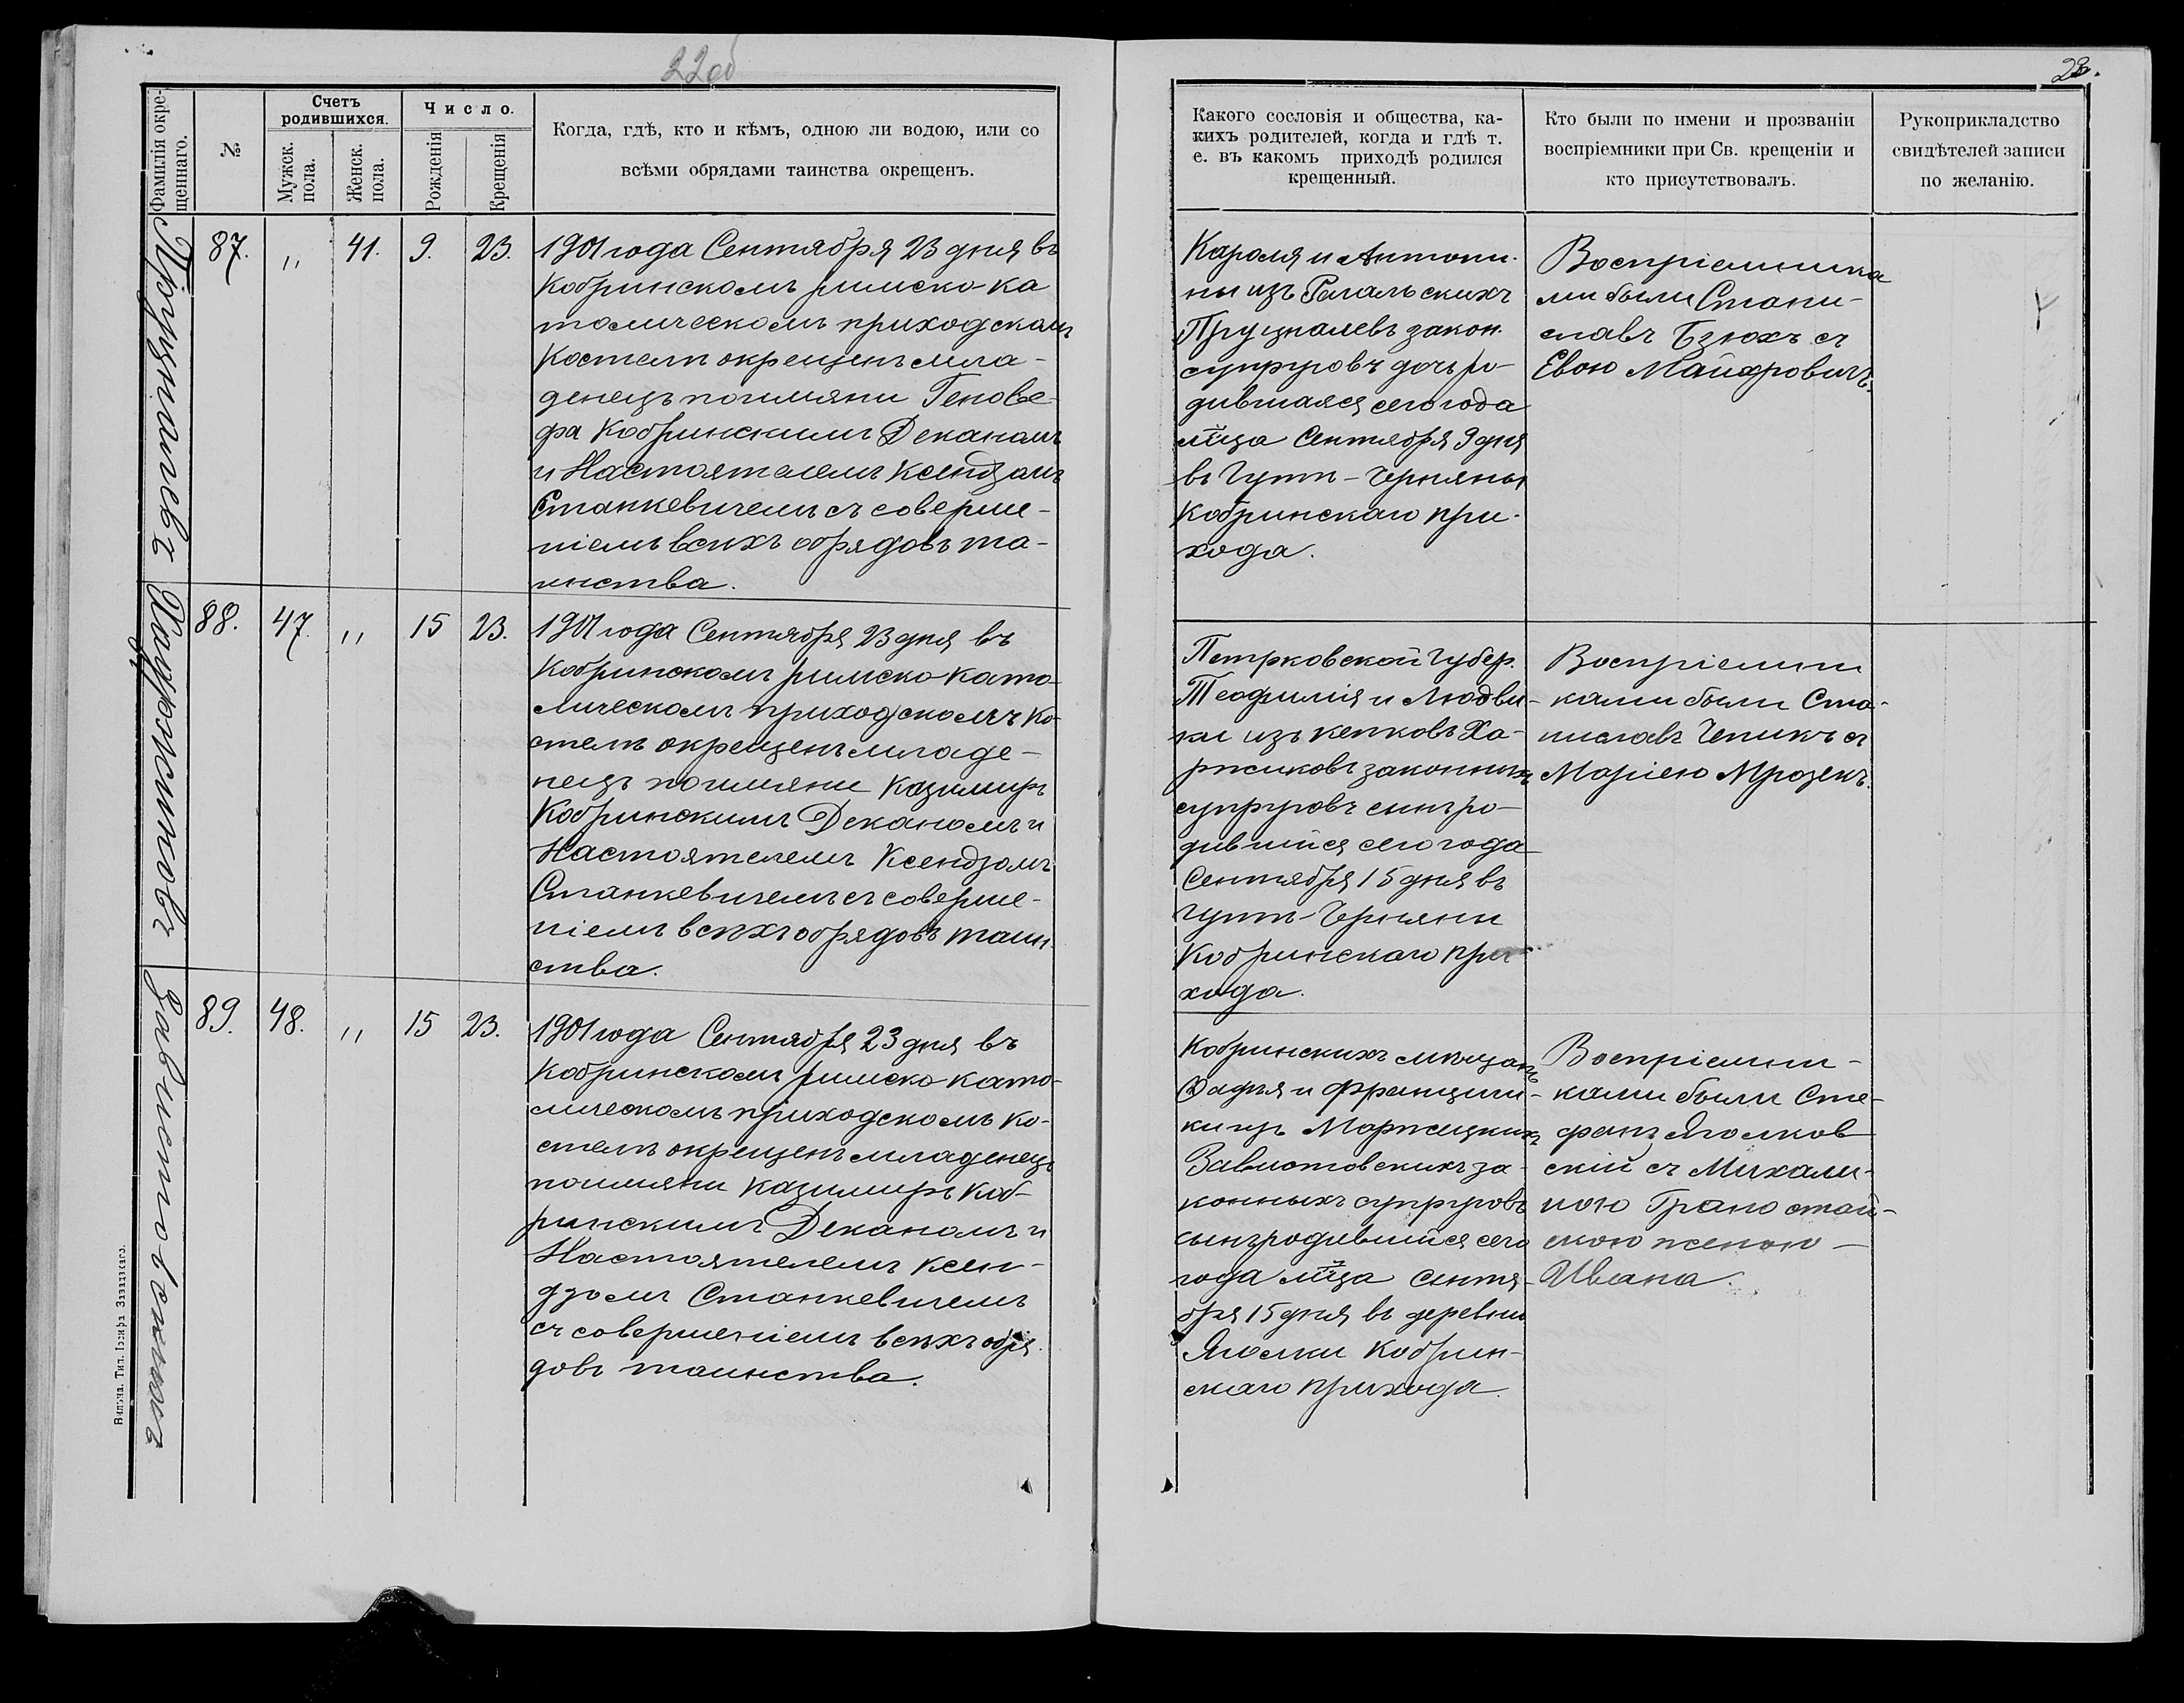 22об
28.
Фамилія окре-
щеннаго.
№
Счетъ
родившихся.
Мужск.
пола.
Женск.
пола.
Число.
Рожденія
Крещенія
Когда, гдѣ, кто и кѣмъ, одною ли водою, или со
всѣми обрядами таинства окрещенъ.
Какого сословія и общества, ка-
кихъ родителей, когда и гдѣ т.
е. въ какомъ приходѣ родился
крещенный.
Кто были по имени и прозваніи
воспріемники при Св. крещеніи и
кто присутствовалъ.
Рукоприкладство
свидѣтелей записи
по желанію.
87. " 41. 9. 23.
1901 года Сентября 23 дня въ
Кобринскомъ римско-ка
толическомъ приходскомъ
Костелѣ окрещенъ мла-
денецъ по имяни Генове-
фа Кобринскимъ Деканомъ
и Настоятелемъ Ксендзомъ
Станкевичемъ съ соверше-
ніемъ всѣхъ обрядовъ та-
инства.
Кароля и Антони-
ны изъ
закон.
супруговъ дочь ро-
дившаяся сего года
мѣца Сентября 9 дня
въ Гутѣ-Черняны
Кобринскаго при-
хода.
Воспріемника
ми были Стани-
славъ Бзюхъ съ
Евою
88. 47. " 15 23.
1901 года Сентября 23 дня въ
Кобринскомъ римско като-
лическомъ приходскомъ Ко-
стелѣ окрещенъ младе-
нецъ по имяни Казимиръ
Кобринскимъ Деканомъ и
Настоятелемъ Ксендзомъ
Станкевичемъ съ соверше-
ніемъ всѣхъ обрядовъ таин-
ства.
Петрковской Губер.
Теофилія и Людви-
ки изъ Кепковъ Ха-
законныхъ
супруговъ сынъ ро-
дившійся сего года
Сентября 15 дня въ
Гутѣ-Черняни
Кобринскаго при-
хода.
Воспріемни
ками были Ста-
ниславъ Чепикъ съ
Маріею Мрозекъ.
Завистовскихъ
89. 48. " 15 23.
1901 года Сентября 23 дня въ
Кобринскомъ римско като-
лическомъ приходскомъ Ко-
стелѣ окрещенъ младенецъ
по имяни Казимиръ Коб-
ринскимъ Деканомъ и
Настоятелемъ Ксен-
дзомъ Станкевичемъ
съ совершеніемъ всѣхъ обря
довъ таинства.
Кобринскихъ мѣщанъ
Фадѣя и Франциш-
ки изъ Маржецкихъ
Завистовскихъ за-
конныхъ супруговъ
сынъ родившійся сего
года мѣца Сентя-
бря 15 дня въ деревни
Яголки Кобрин-
скаго прихода.
Воспріемни-
ками были Сте-
фанъ Яголков
скій съ Михали-
ною Граностай-
скою женою
Ивана.
Вильна. Тип. Іосифа Завадзкаго.